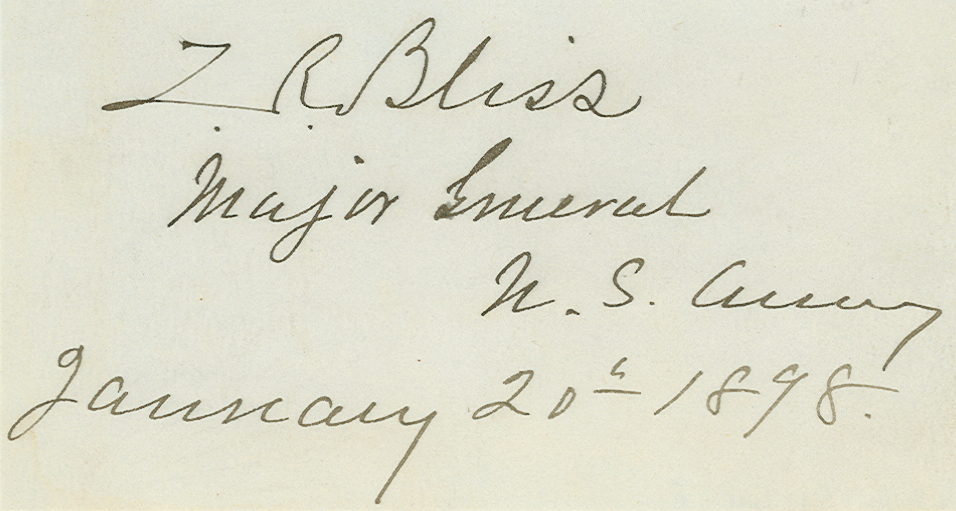 Z. R. Bliss
Major General
U. S. Army
January 20th 1898.